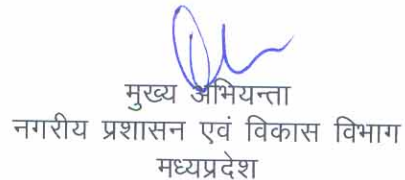 मुख्य अभियन्ता
नगरीय प्रशासन एवं विकास विभाग
मध्यप्रदेश